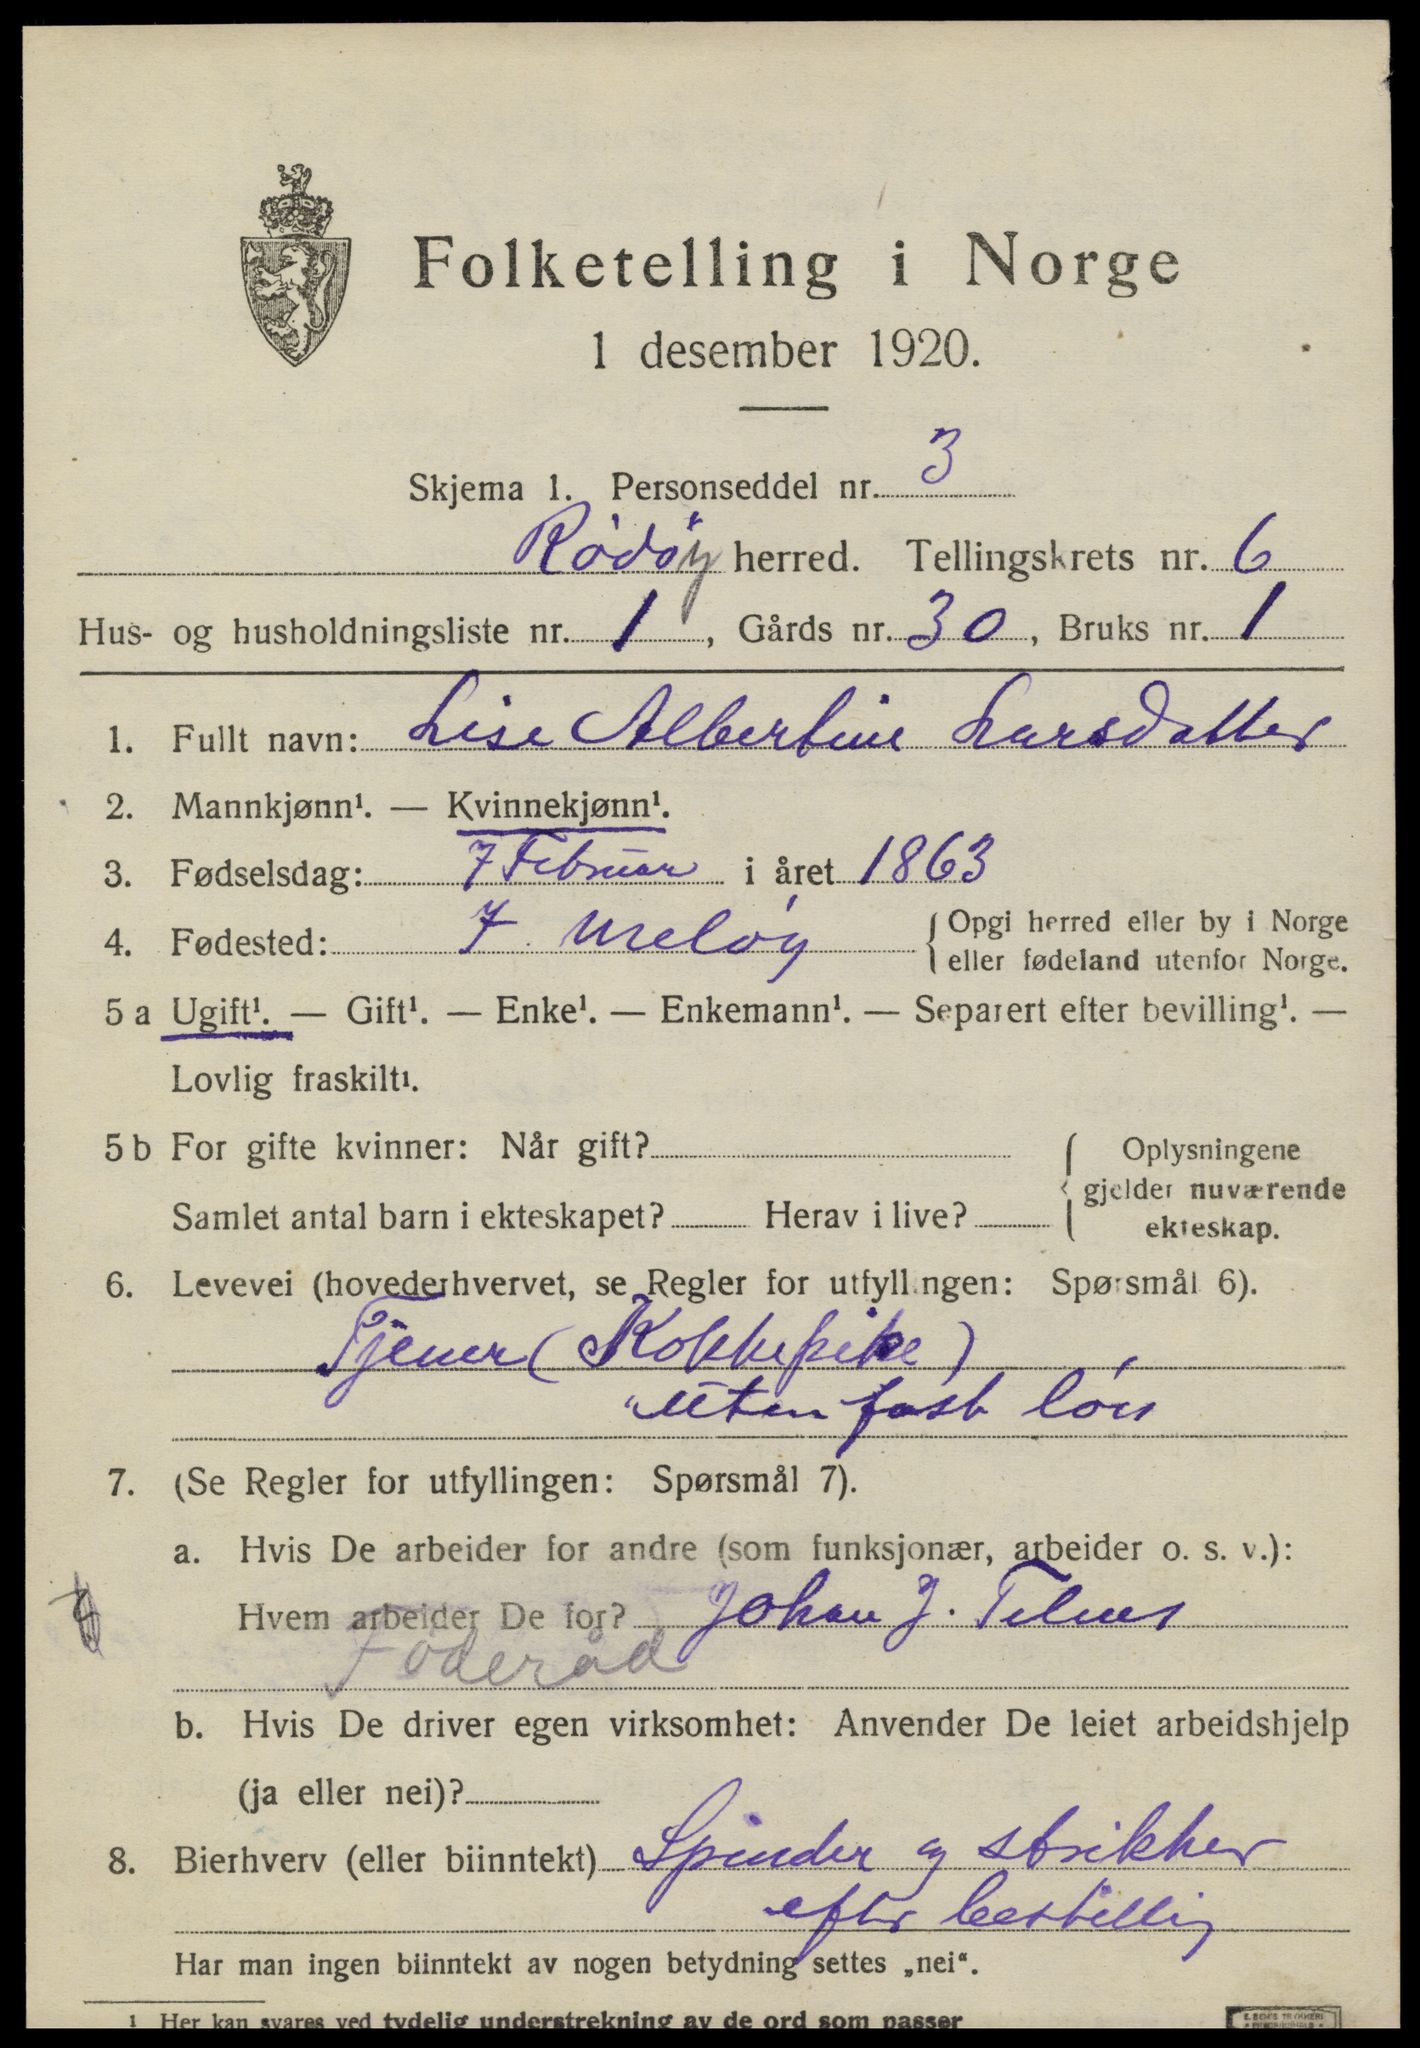 Folketelling i Norge
1 desember 1920.
Skjema 1. Personseddel nr. 3
Rødøy herred. Tellingskrets nr. 6
Hus- og husholdningsliste nr. 1, Gårds nr. 30, Bruks nr. 1
1. Fullt navn: Lise Albertine Larsdatter
2. Mannkjønn¹. — Kvinnekjønn¹.
3. Fødselsdag: 7 Februar i året 1863
4. Fødested: Meløy { Opgi herred eller by i Norge
eller fødeland utenfor Norge.
5 a Ugift¹. — Gift¹. — Enke¹. — Enkemann¹. — Separert efter bevilling¹. —
Lovlig fraskilt¹.
5 b For gifte kvinner: Når gift?
Samlet antal barn i ekteskapet? Herav i live?
{ Oplysningene
gjelder nuværende
ekteskap.
6. Levevei (hovederhvervet, se Regler for utfyllingen: Spørsmål 6).
Tjener (Kokkepike)
uten fast løn
7. (Se Regler for utfyllingen: Spørsmål 7).
a. Hvis De arbeider for andre (som funksjonær, arbeider o. s. v.):
Hvem arbeider De for? Johan J.
Føderåd
b. Hvis De driver egen virksomhet: Anvender De leiet arbeidshjelp
(ja eller nei)?
8. Bierhverv (eller biinntekt) Spinder og strikker
efter bestilling
Har man ingen biinntekt av nogen betydning settes „nei“.
¹ Her kan svares ved tydelig understrekning av de ord som passer